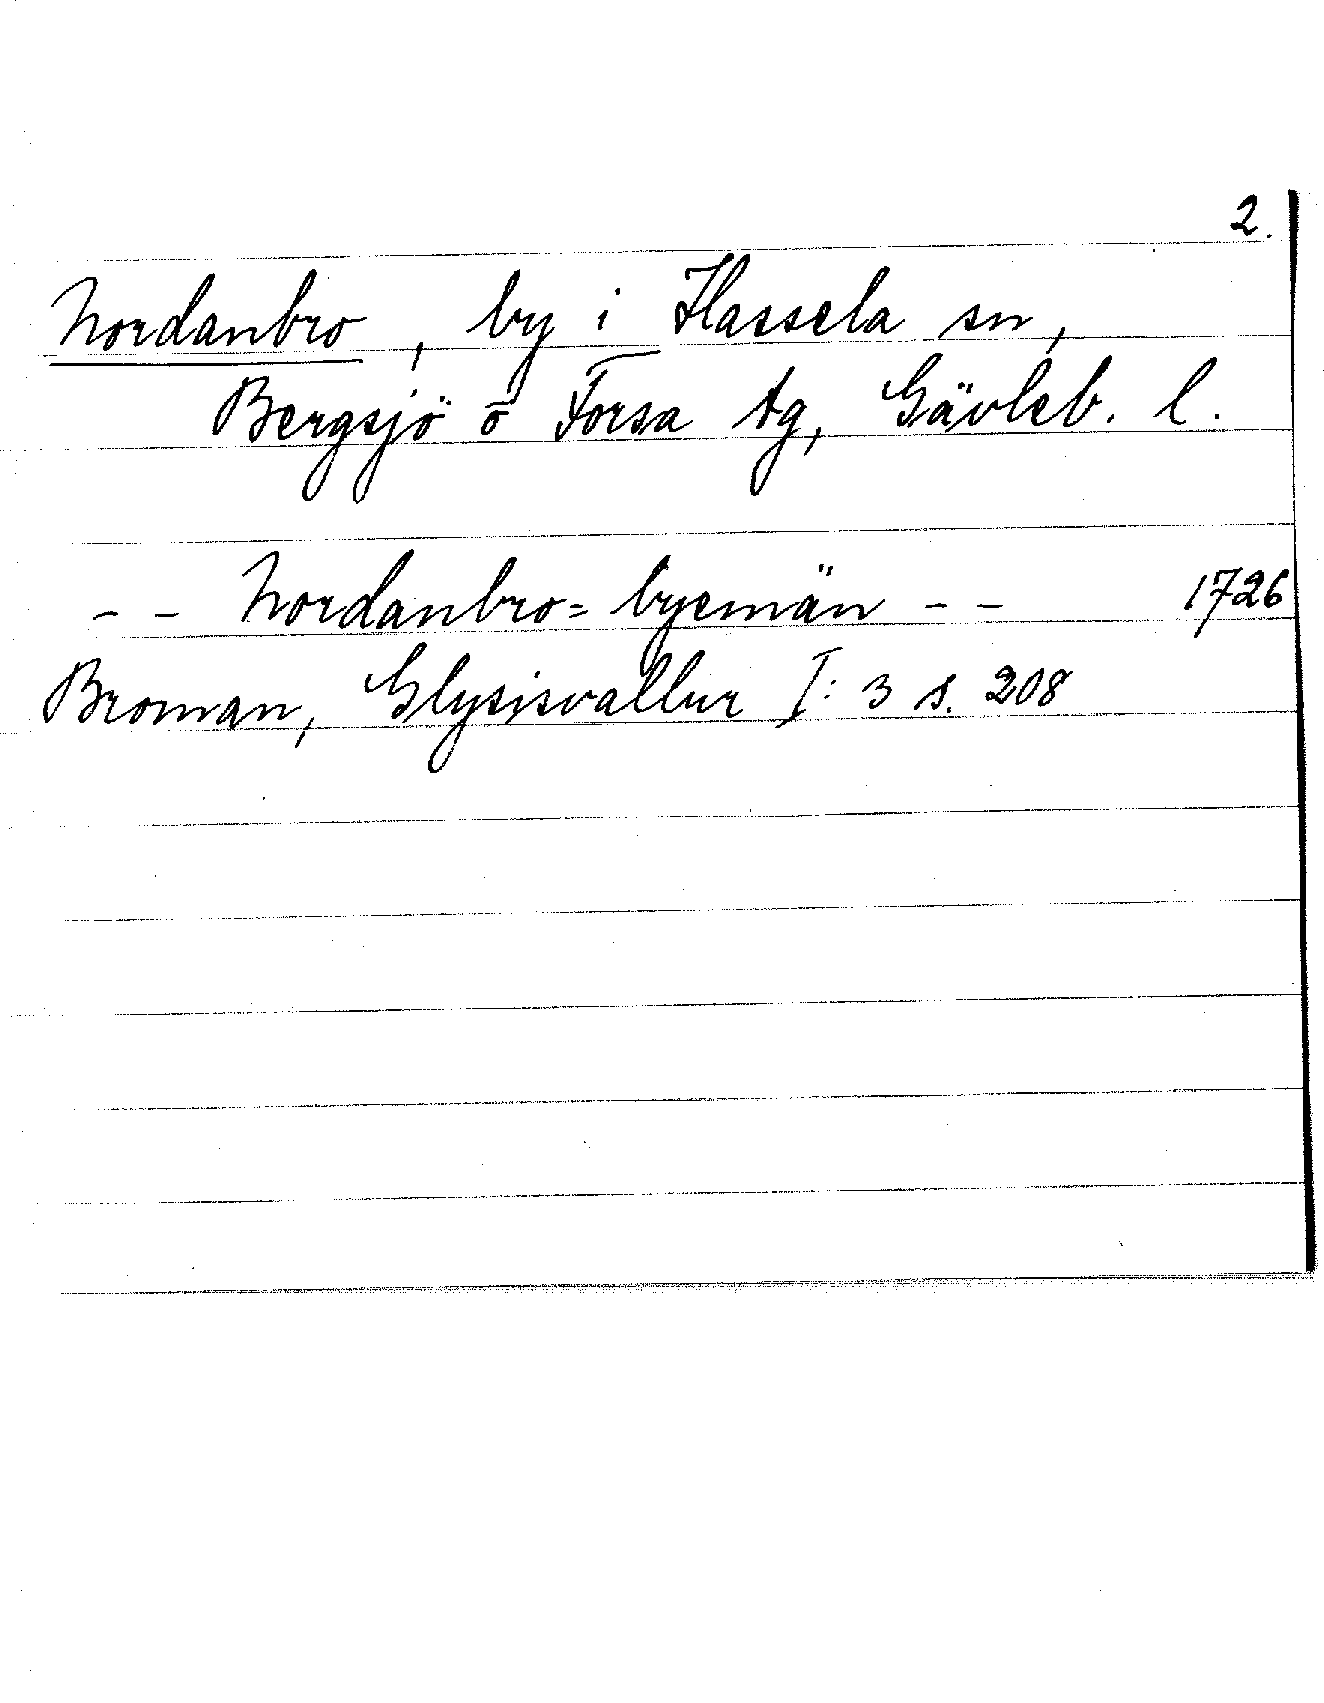 2.
Nordanbro, by i Hassela sn,
Bergsjö o Forsa tg, Gävleb. l.
- - Nordanbro= byemän - - 1726
Broman, Glysisvallur I: 3 s. 208